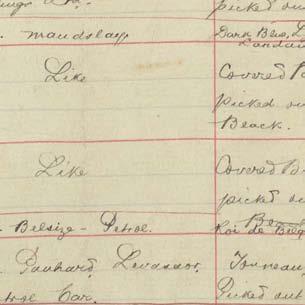 picked out
. Maudslay. Dark Blue, L
Landau
Like Covered B
picked ou
Black.
Like Covered B
picked ou
Blac
. Belsize - Petrol. Roi de Belg
. Panhard Levassor. Tonneau
trol Car. Picked out